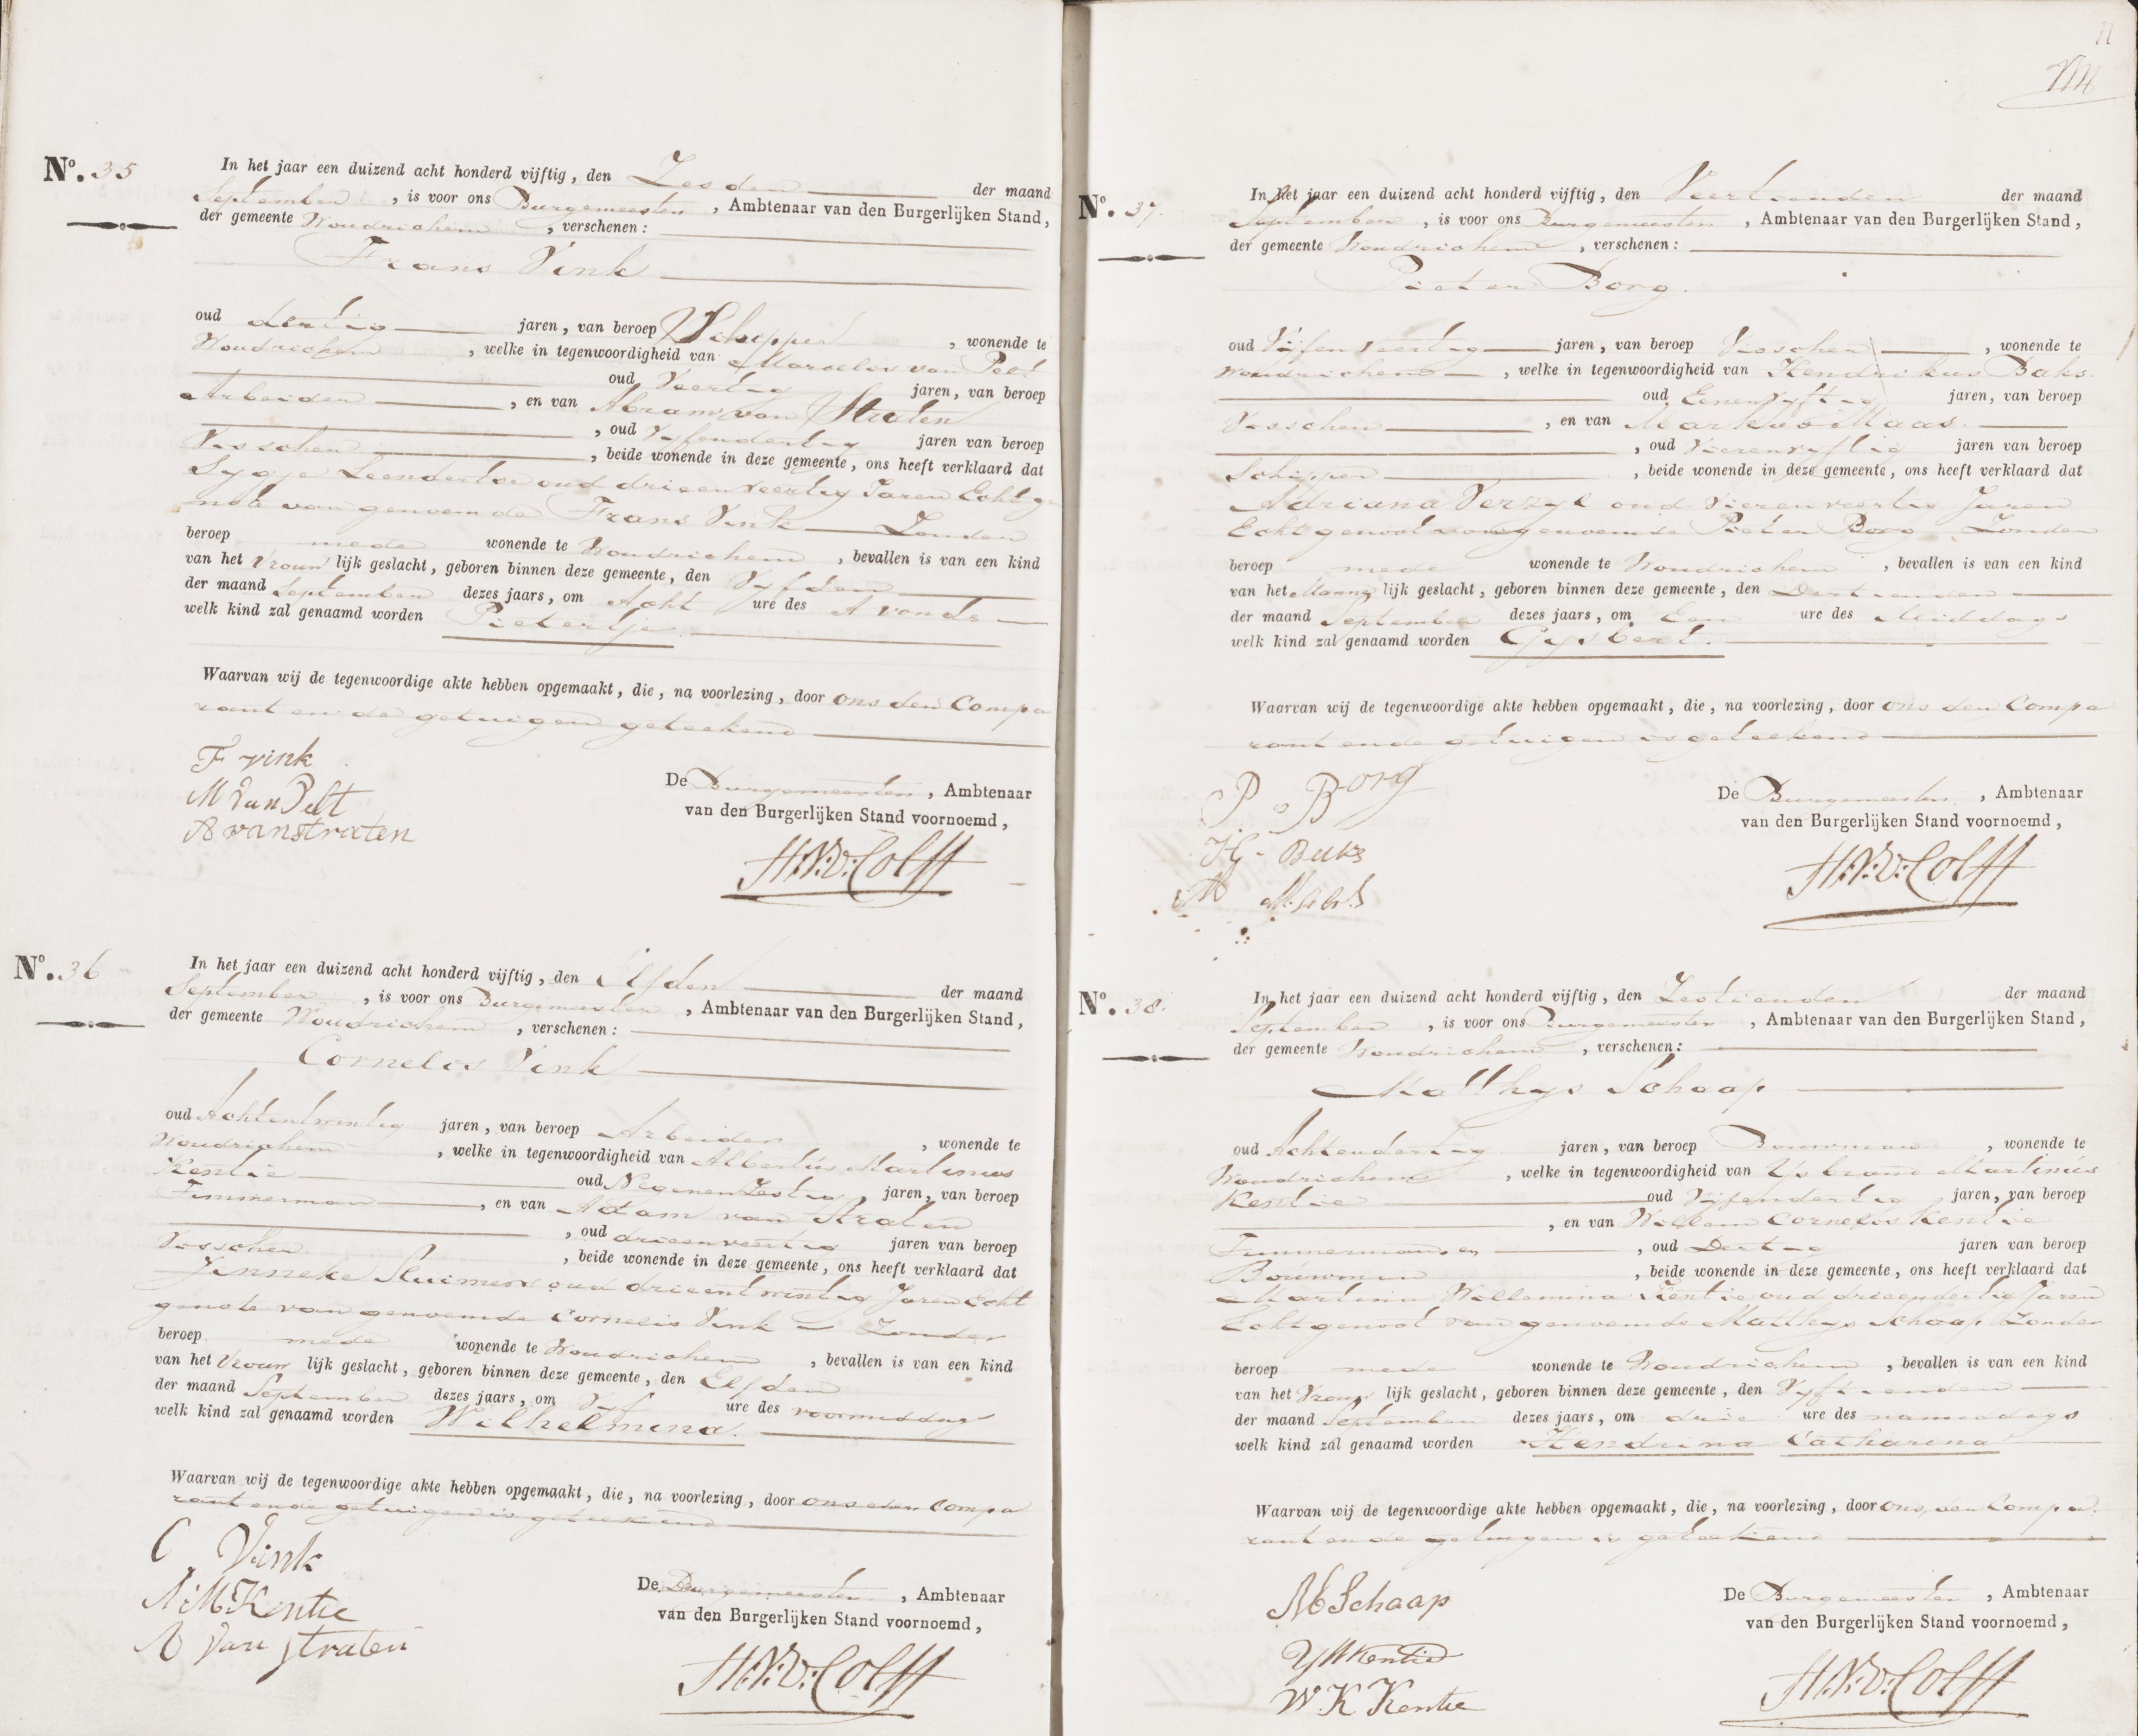 No. 35
In het jaar een duizend acht honderd vijftig, den Zesden der maand
September, is voor ons Burgemeester, Ambtenaar van den Burgerlijken Stand,
der gemeente Woudrichem, verschenen:
Frans Vink
oud dertig jaren, van beroep Schipper, wonende te
Woudrichem, welke in tegenwoordigheid van Marcelis van Pelt
oud Veertig jaren, van beroep
Arbeider, en van Abram van Straten
, oud Vyfendertig jaren van beroep
Visscher, beide wonende in deze gemeente, ons heeft verklaard dat
Sygje Leendertse oud drieenveertig Jaren Echtge
note van genoemde Frans Vink Zonder
beroep mede wonende te Woudrichem, bevallen is van een kind
van het Vrouw lijk geslacht, geboren binnen deze gemeente, den Vyfden
der maand September dezes jaars, om Acht ure des Avonds
welk kind zal genaamd worden Pietertje
Waarvan wij de tegenwoordige akte hebben opgemaakt, die, na voorlezing, door ons den Compa
rant en de getuigen geteekend
F vink
M van Pelt
A van straten
De Burgemeester, Ambtenaar
van den Burgerlijken Stand voornoemd,
No. 36
In het jaar een duizend acht honderd vijftig, den Elfden der maand
September, is voor ons Burgemeester, Ambtenaar van den Burgerlijken Stand,
der gemeente Woudrichem, verschenen:
Cornelis Vink
oud Achtentwintig jaren, van beroep Arbeider, wonende te
Woudrichem, welke in tegenwoordigheid van Albertus Martinus
Kentie oud Negenen Zestig jaren, van beroep
Timmerman, en van Adam van Straten
, oud drieenveertig jaren van beroep
Visscher, beide wonende in deze gemeente, ons heeft verklaard dat
Jenneke Sluimers oud drieentwintig Jaren Echt
genote van genoemde Cornelis Vink Zonder
beroep mede wonende te Woudrichem, bevallen is van een kind
van het Vrouw lijk geslacht, geboren binnen deze gemeente, den Elfden
der maand September dezes jaars, om Vyf ure des voormiddags
welk kind zal genaamd worden Wilhelmina.
Waarvan wij de tegenwoordige akte hebben opgemaakt, die, na voorlezing, door ons den Compa
rant en de getuigen is geteekend
C Vink
A:M:Kentie
A van straten
De Burgemeester, Ambtenaar
van den Burgerlijken Stand voornoemd,
No. 37.
In het jaar een duizend acht honderd vijftig, den Veertienden der maand
September, is voor ons Burgemeester, Ambtenaar van den Burgerlijken Stand,
der gemeente Woudrichem, verschenen:
Pieter Borg.
oud Vijfen Veertig jaren, van beroep Visscher, wonende te
Woudrichem, welke in tegenwoordigheid van Hendrikus Baks
oud Eenenvyftig jaren, van beroep
Visscher, en van Markus Maas.
, oud Vierenvyftig jaren van beroep
Schipper, beide wonende in deze gemeente, ons heeft verklaard dat
Adriana Verzyl oud Vierenveertig Jaren
Echtgenoot van genoemde Pieter Borg Zonder
beroep mede wonende te Woudrichem, bevallen is van een kind
van het Manne lijk geslacht, geboren binnen deze gemeente, den Dertienden
der maand September dezes jaars, om Een ure des Middags
welk kind zal genaamd worden Gysbert.
Waarvan wij de tegenwoordige akte hebben opgemaakt, die, na voorlezing, door ons den Compa
rant en de getuigen is geteekend
P. Borg
M Maas
De Burgemeester, Ambtenaar
van den Burgerlijken Stand voornoemd,
No. 38.
In het jaar een duizend acht honderd vijftig, den Zestienden der maand
September, is voor ons Burgemeester, Ambtenaar van den Burgerlijken Stand,
der gemeente Woudrichem, verschenen:
Matthys Schaap
oud Achtendertig jaren, van beroep Bouwman, wonende te
Woudrichem, welke in tegenwoordigheid van Ysbrand Martinus
Kentie oud Vijfendertig jaren, van beroep
, en van Willem Cornelis Kentie
Timmerman en, oud Dertig jaren van beroep
Bouwman, beide wonende in deze gemeente, ons heeft verklaard dat
Martina Willemina Kentie oud drieendertig Jaren
Echtgenoot van genoemde Matthys Schaap Zonder
beroep mede wonende te Woudrichem, bevallen is van een kind
van het Vrouw lijk geslacht, geboren binnen deze gemeente, den Vyftienden
der maand September dezes jaars, om drie ure des namiddags
welk kind zal genaamd worden Hendrina Catharina
Waarvan wij de tegenwoordige akte hebben opgemaakt, die, na voorlezing, door ons, den Compa
rant en de getuigen is geteekend
M Schaap
YM Kentie
W. K Kentie
De Burgemeester, Ambtenaar
van den Burgerlijken Stand voornoemd,